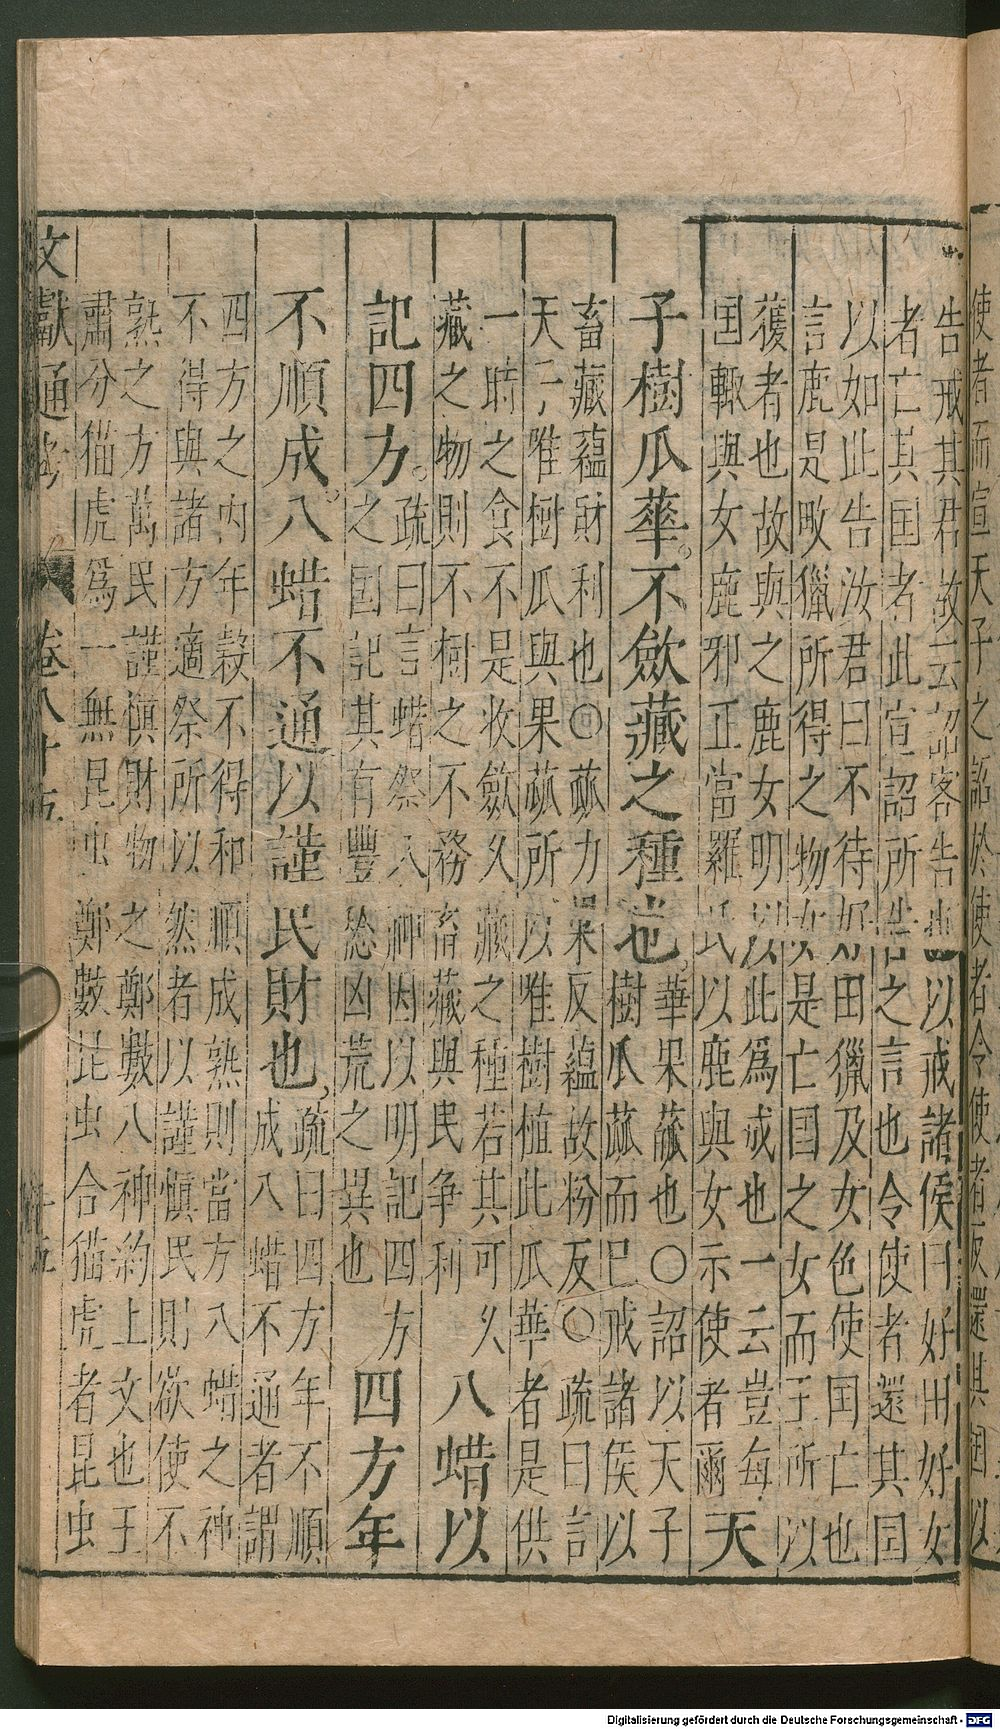 使者而宣天子之詔於使者令使者反還其国以
告戒其君故云詔客告也以戒諸侯曰好田好女
者亡其国者此宣詔所告之言也令使者還其国
以如此告汝君曰不待好田獵及女色使国亡也
言鹿是畋獵所得之物女是亡国之女而王所以
獲者也故與之鹿女明以此爲戒也一云豈每
国輒與女鹿邪正當羅氏以鹿與女示使者爾天
子樹瓜華。不斂藏之種也。華果蓏也○詔以天子
樹瓜蓏而已戒諸侯以
畜藏蘊財利也○蓏力果反蘊故粉反○疏曰言
天子唯樹瓜與果蓏所以唯樹植此瓜華者是供
一時之食不是收斂久藏之種若其可久
藏之物則不樹之不務畜藏與民争利八蜡以
記四方。疏曰言蜡祭八神因以明記四方
之国記其有豐愍凶荒之異也四方年
不順成。八蜡不通以謹民財也,疏曰四方年不順
成八蜡不通者謂
四方之内年穀不得和順成熟則當方八蜡之神
不得與諸方適祭所以然者以謹慎民則欲使不
熟之方萬民謹慎財物之鄭數八神約上文也王
肅分猫虎爲一無昆虫鄭數昆虫合猫虎者昆虫
文獻通考 卷八十五 十五